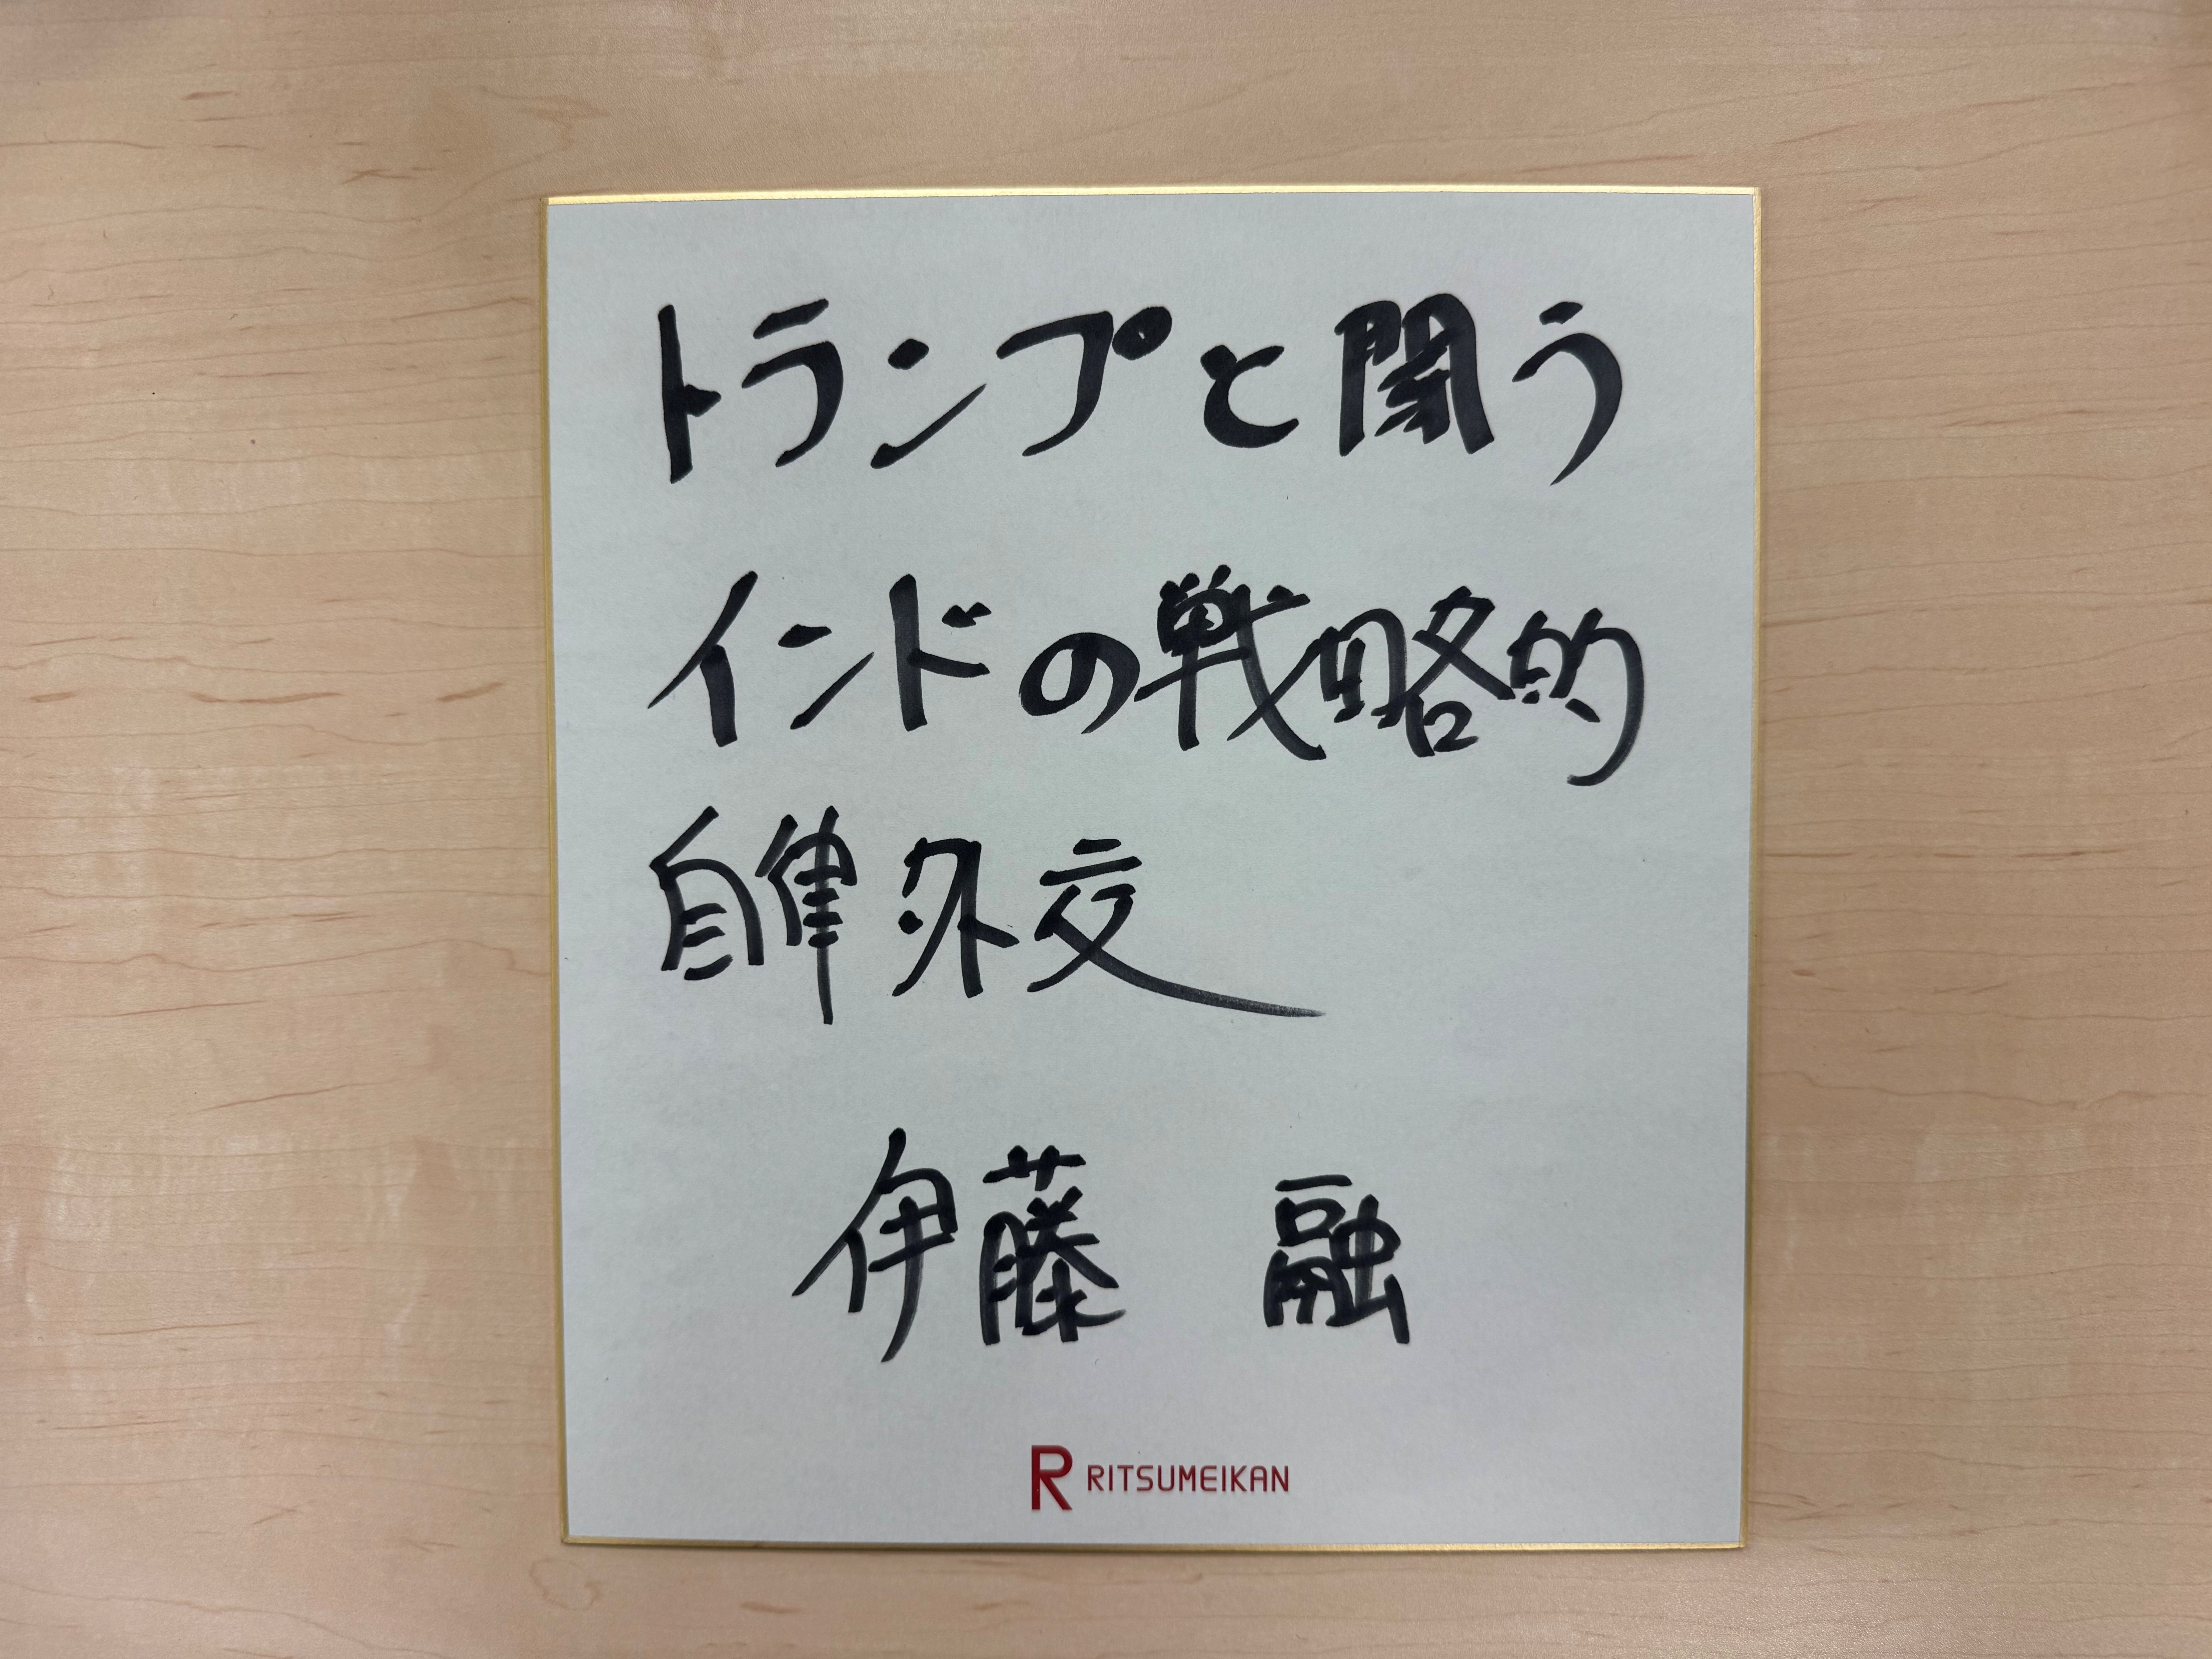 トランプと闘う
インドの戦略的
自律外交
伊藤 融
R RITSUMEIKAN